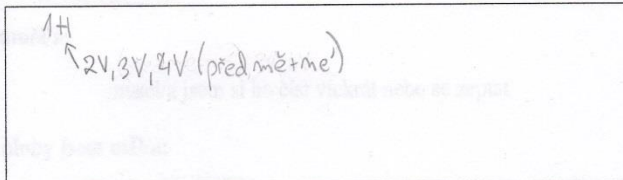 1H
↖2V, 3V, 4V (předmětné)